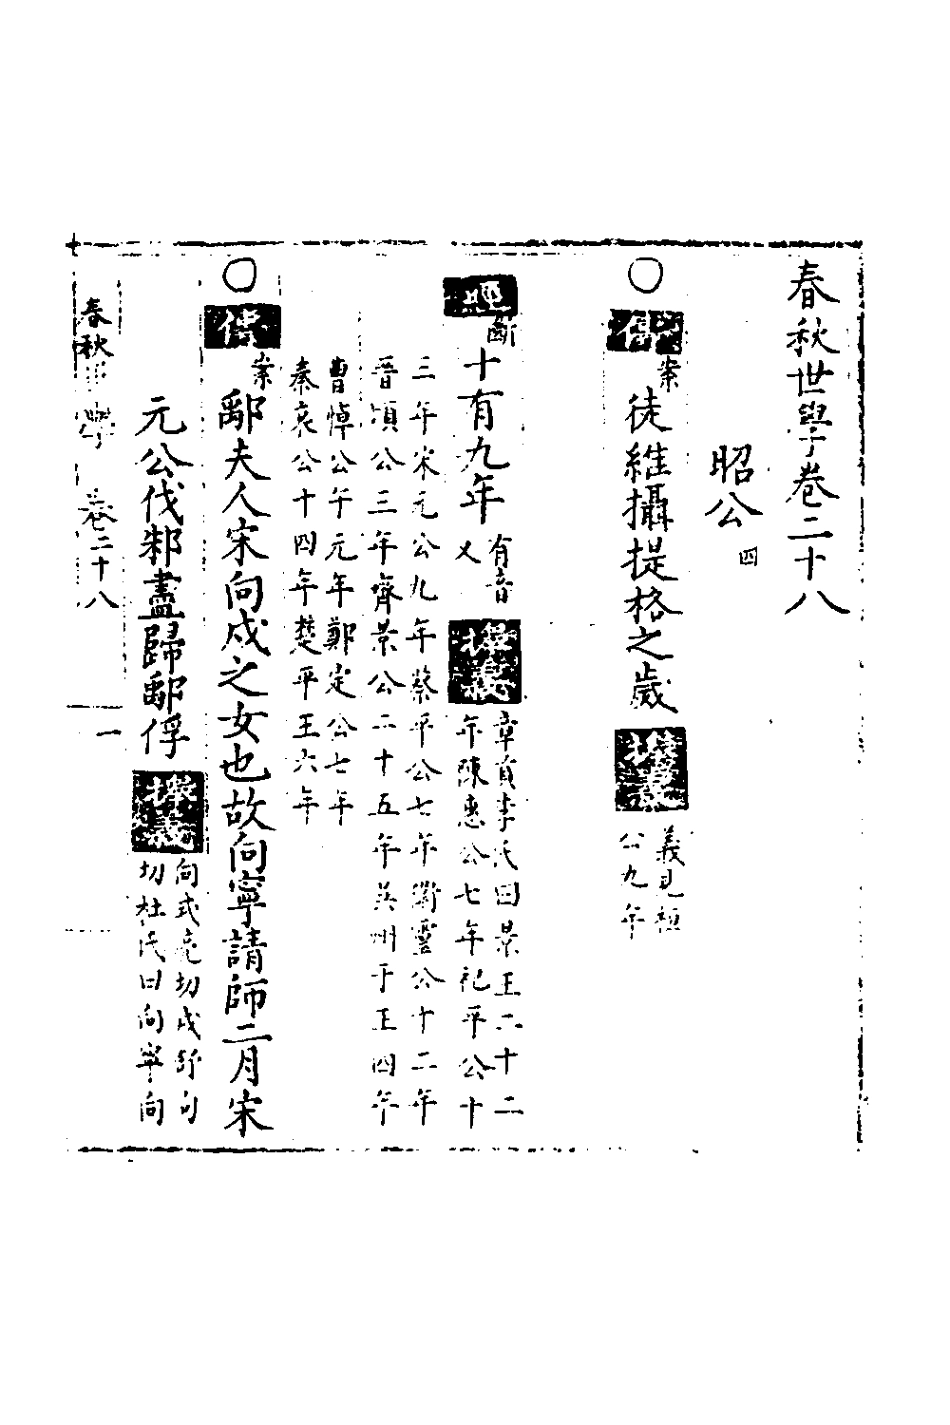 春秋世學卷二十八
昭公 四
○傳 案 徒維攝提格之歲
義見桓
公九年
經 斷 十有九年
有音
又
章首李氏曰景王二十二
年陳惠公七年杞平公十
三年宋元公九年蔡平公七年衛靈公十二年
晉頃公三年齊景公二十五年吳州于王四年
曹悼公午元年鄭定公七年
秦哀公十四年楚平王六年
○傳 案 鄅夫人宋向戌之女也故向寧請師二月宋
元公伐邾盡歸鄅俘
向式亮切戌舒句
切杜氏曰向寧向
春秋世學 卷二十八 一